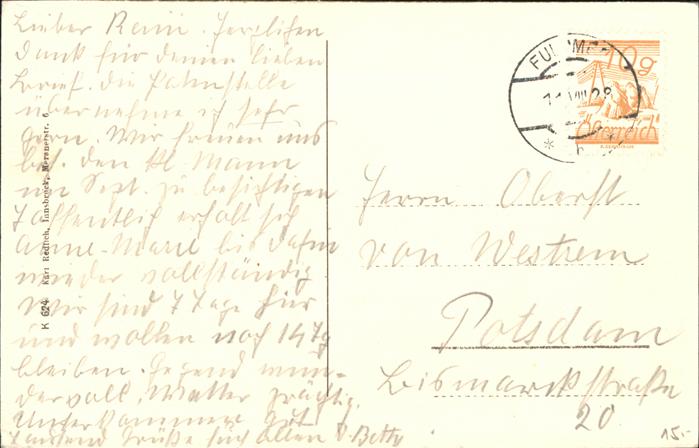 Lieber Reini. Herzlichen
Dank für deinen lieben
Brief. Die Patenstelle
übernehme ich sehr
gern. Wir freuen uns
den kl. Mann
im Sept. zu besichtigen
Hoffentlich erholt sich
Anne-Marie bis dahin
wieder vollständig
Wir sind 7 Tage hier
und wollen noch 14 Tg
bleiben. Gegend wun-
dervoll, Wetter prächtig.
Unterkommen gut
Tausend Grüße Euch Allen Betty
K 624 Karl Redlich, Innsbruck, Meranerstr. 6
FULPMES
11.VIII.28
10g
Österreich
Herrn Oberst
von Westrem
Potsdam
Bismarckstraße
20
15.-